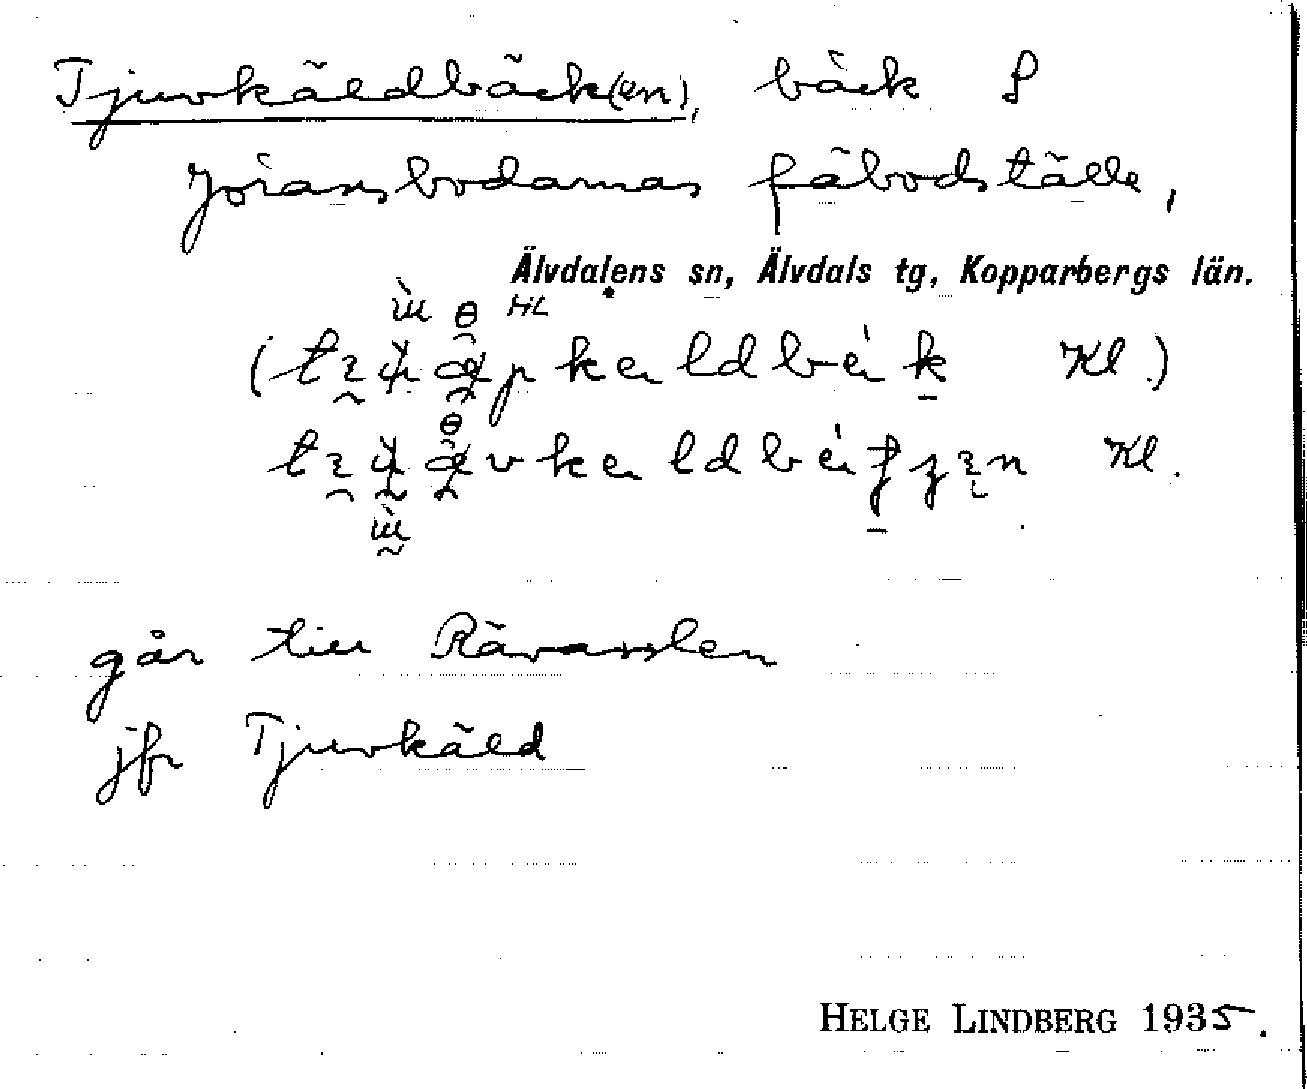 Tjuvkäldbäck(en), bäck S
Jöransbodarnas fäbodställe,
Älvdalens sn, Älvdals tg, Kopparbergs län.
HL
Kl.)
Kl.
går till Rävasslen
jfr Tjuvkäld
HELGE LINDBERG 1935.